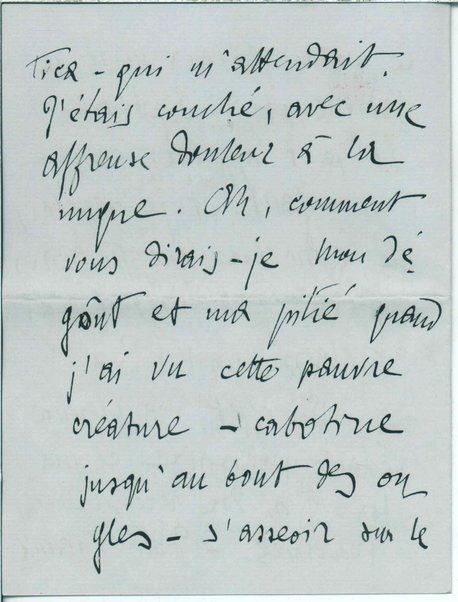 tica - qui m'attendait.
J'étais couché, avec une
affreuse douleur à la
nuque. Oh, comment
vous dirais-je mon dé
goût et ma pitié quand
j'ai vu cette pauvre
créature - cabotine
jusqu'au bout des on
gles - s'asseoir sur le